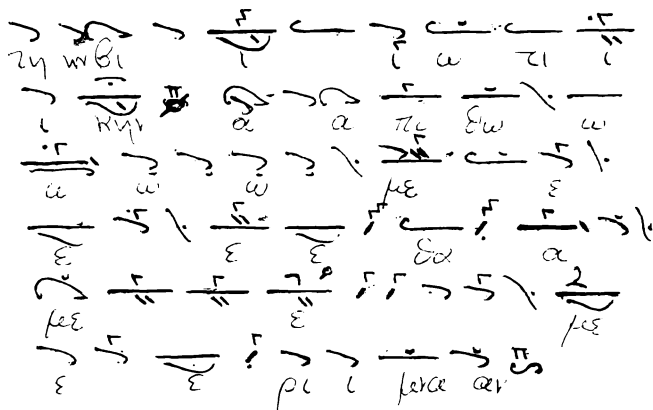 τη ην βι ι ι ω τι ι
ι κην α α πο θω ω
ω ω ω με ε
ε ε ε θα α
με ε με
ε ε ρι ι μνα αν